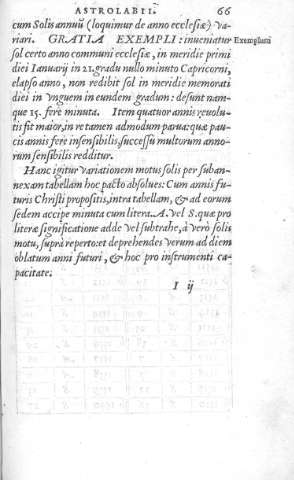 ASTROLABII. 66
cum Solis annuũ (loquimur de anno ecclesiæ) va-
riari. GRATIA EXEMPLI: inueniatur Exemplum
sol certo anno communi ecclesiæ, in meridie primi
diei Ianuarij in 21. gradu nullo minuto Capricorni,
elapso anno, non redibit sol in meridie memorati
diei in vnguem in eundem gradum: desunt nam-
que 15. fere minuta. Item quatuor annis reuolu-
tis fit maior, in re tamen admodum parua: quæ pau-
cis annis fere insensibilis, successu multorum anno-
rum sensibilis redditur.
Hanc igitur variationem motus solis per suban-
nexam tabellam hoc pacto absolues: Cum annis fu-
turis Christi propositis, intra tabellam, & ad eorum
sedem accipe minuta cum litera A. vel S. quæ pro
literæ significatione adde vel subtrahe, à vero solis
motu, suprà reperto: et deprehendes verum ad diem
oblatum anni futuri, & hoc pro instrumenti ca-
pacitate.
I ij